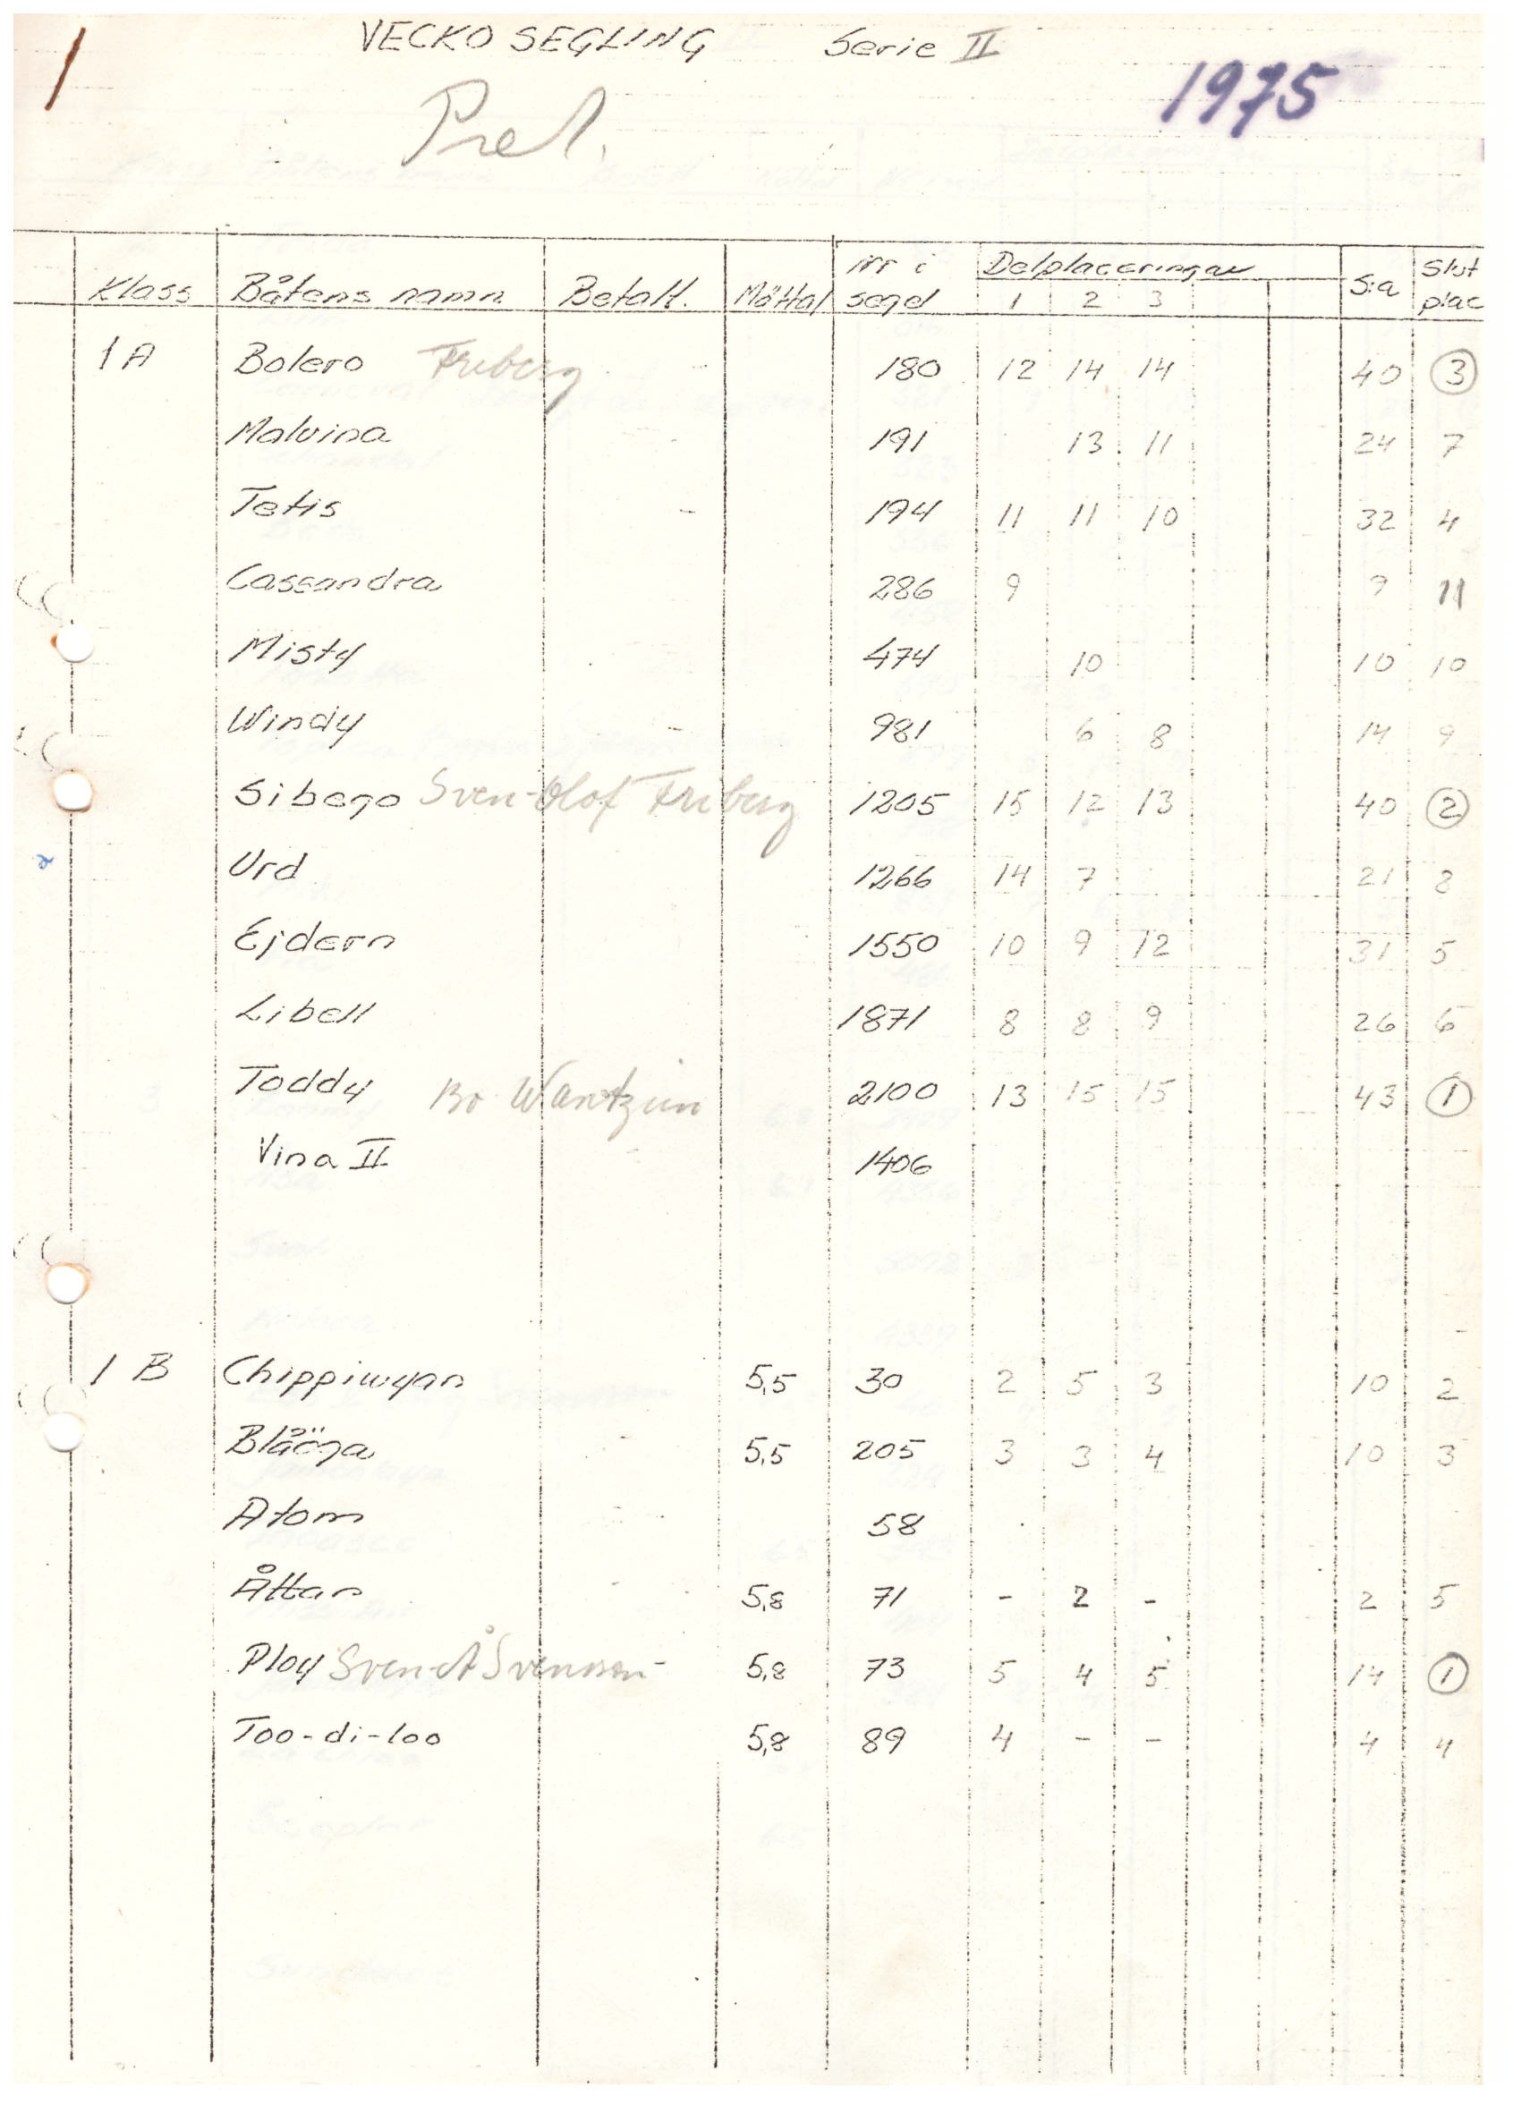 1
VECKO SEGLING Serie II
1975
Prel.
Klass Båtens namn Betalt. Mättal Nr i segel Delplaceringar 1 2 3 S:a Slut plac
1A Bolero Friberg 180 12 14 14 40 3
Malvina 191 13 11 24 7
Tetis 194 11 11 10 32 4
Cassandra 286 9 9 11
Misty 474 10 10 10
Windy 981 6 8 14 9
Sibego Sven-Olof Friberg 1205 15 12 13 40 2
Urd 1266 14 7 21 8
Ejdern 1550 10 9 12 31 5
Libell 1871 8 8 9 26 6
Toddy Bo Wantzin 2100 13 15 15 43 1
Vina II 1406
1 B Chippiwyan 5,5 30 2 5 3 10 2
Blåöga 5,5 205 3 3 4 10 3
Atom 58
Åttan 5,8 71 - 2 - 2 5
Ploy Sven-Å Svensson 5,8 73 5 4 5 14 1
Too-di-loo 5,8 89 4 - - 4 4